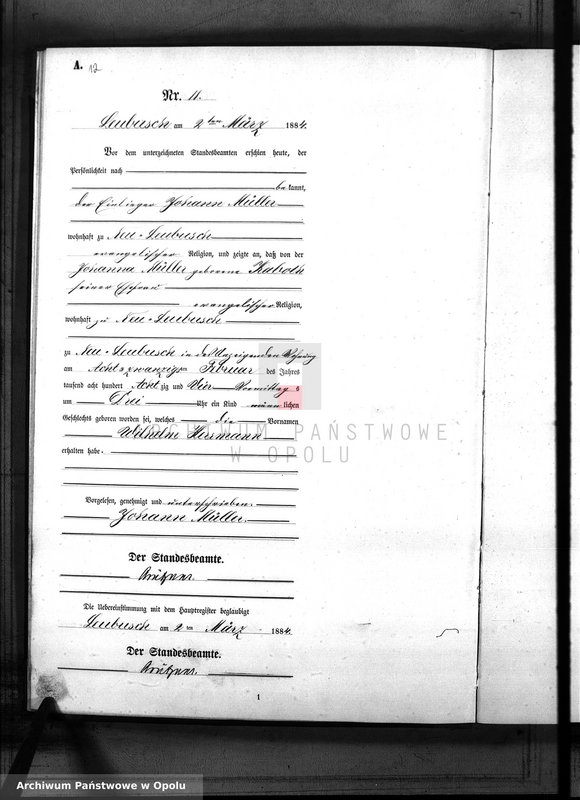 A. 12
Nr. 11.
Leubusch am 2ten März 1884.
Vor dem unterzeichneten Standesbeamten erschien heute, der
Persönlichkeit nach
be kannt,
der Einlieger Johann Müller
wohnhaft zu Neu-Leubusch
evangelischer Religion, und zeigte an, daß von der
Johanna Müller geborene
seiner Ehefrau
evangelischer Religion,
wohnhaft zu Neu-Leubusch
zu Neu-Leubusch in des Anzeigenden Wohnung
am Achtzwanzigsten Februar des Jahres
tausend acht hundert Acht zig und Vier Vormittag s
um Drei Uhr ein Kind männ lichen
Geschlechts geboren worden sei, welches die Vornamen
Wilhelm Herrmann
erhalten habe.
ARCHIWUM PAŃSTWOWE
W OPOLU
Vorgelesen, genehmigt und unterschrieben.
Johann Müller.
Der Standesbeamte.
Die Uebereinstimmung mit dem Hauptregister beglaubigt
Leubusch am 2ten März 1884.
Der Standesbeamte.
1
Archiwum Państwowe w Opolu